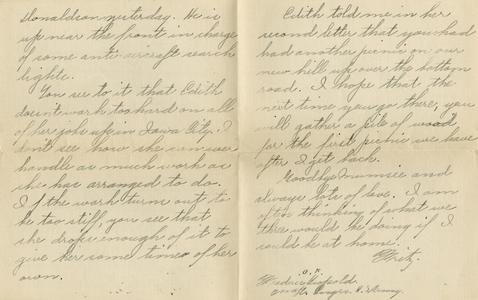 Donaldson yesterday. He is
up near the front in charge
of some anti-aircraft search
lights.
You see to it that Edith
doesn't work too hard on all
of her jobs up in Iowa City. I
don't see how she can ever
handle as much work as
she has arranged to do.
If the work turns out to
be too stiff, you see that
she drops enough of it to
give her some time of her
own.
Edith told me in her
second letter that you had
had another picnic on our
new hill up over the bottom
road. I hope that the
next time you go there, you
will gather a pile of wood
for the first picnic we have
after I get back.
Goodbye Mumsie and
always lots of love. I am
often thinking of what we
three would be doing if I
could be at home.
Fritz.
O.K.
Frederic Leopold
Engrs. U.S. Army.